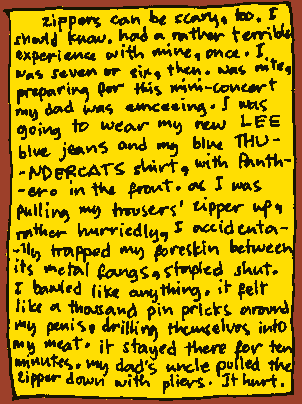 zippers can be scary, too. I
should know. had a rather terrible
experience with mine, once. I
was seven or six, then. was nite,
preparing for this mini-concert
my dad was emceeing. I was
going to wear my new LEE
blue jeans and my blue THU-
-NDERCATS shirt, with Panth-
-ero in the front. as I was
pulling my trousers' zipper up,
rather hurriedly, I accidenta-
-lly trapped my foreskin between
its metal fangs, stapled shut.
I bawled like anything. it felt
like a thousand pin pricks around
my penis, drilling themselves into
my meat. it stayed there for ten
minutes. my dad's uncle pulled the
zipper down with pliers. It hurt.